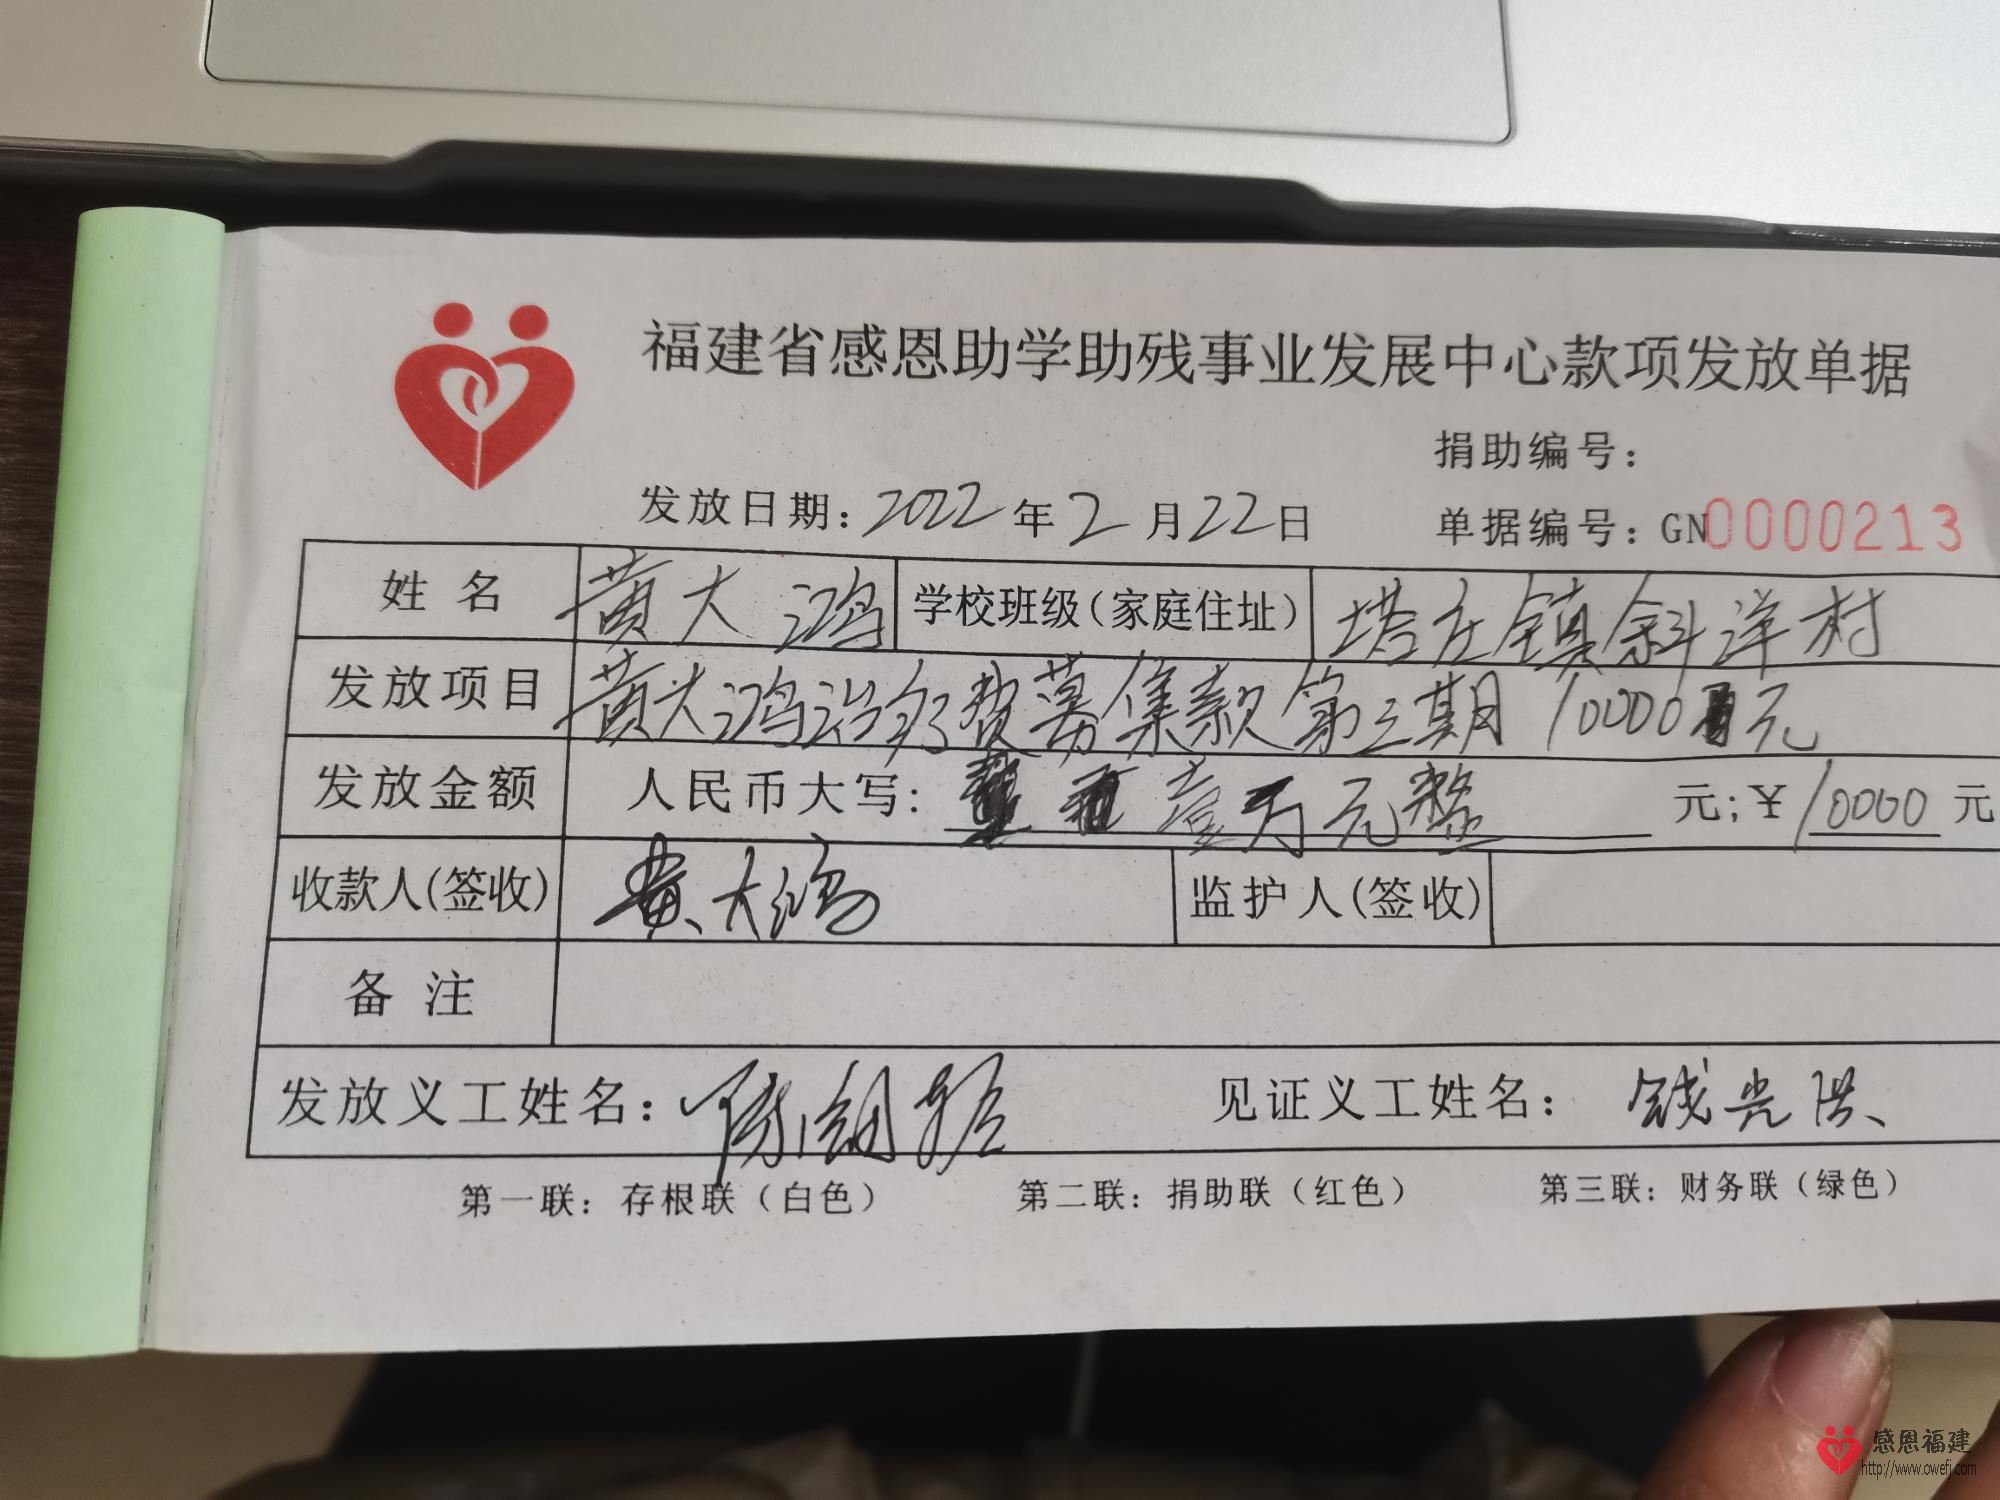 福建省感恩助学助残事业发展中心款项发放单据
捐助编号：
发放日期：2022年2月22日 单据编号：GN0000213
姓名 黄大鸿 学校班级（家庭住址） 塔庄镇斜洋村
发放项目 黄大鸿治疗费募集款第三期10000元
发放金额 人民币大写：壹万元整 元；￥10000元
收款人(签收) 黄大鸿 监护人(签收)
备注
发放义工姓名： 见证义工姓名：钱光洪
第一联：存根联（白色） 第二联：捐助联（红色） 第三联：财务联（绿色）
感恩福建
http://www.owefj.com